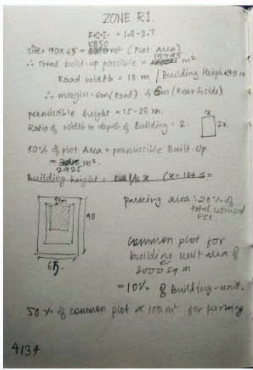 ZONE R1.
F.S.I. = 1.8-2.7
5850
Site: 90x65 = m² (Plot Area)
∴ Total built-up possible = m²
Road width = 18 m / Building Height
∴ margin - 6m (Road) & 6m (Rear & side)
permissible height = 15-25m.
Ratio of width to depth of Building = 2. x
2x
50% of plot Area = permissible Built-Up.
= m².
2925
Building height = x
parking area: 20% of
total utilized
F.S.I.
90
65.
common plot for
building unit area of
2000 sq m
= 10% of building-unit.
50% of common plot 100 m² for parking
4134